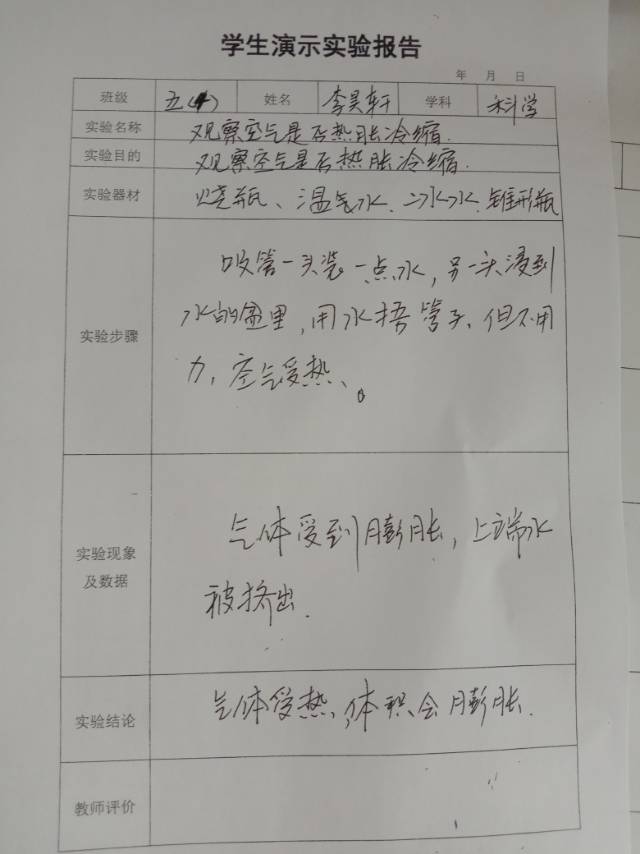 学生演示实验报告
年 月 日
班级 五(4) 姓名 李昊轩 学科 科学
实验名称 观察空气是否热胀冷缩.
实验目的 观察空气是否热胀冷缩.
实验器材 烧瓶、温气水、冰水、锥形瓶
吸管一头装一点水,另一头浸到
水的盒里,用水捂管子、但不用
实验步骤
力,空气受热、。
气体受到膨胀,上端水
实验现象
及数据
被挤出.
气体受热,体积会膨胀.
实验结论
教师评价